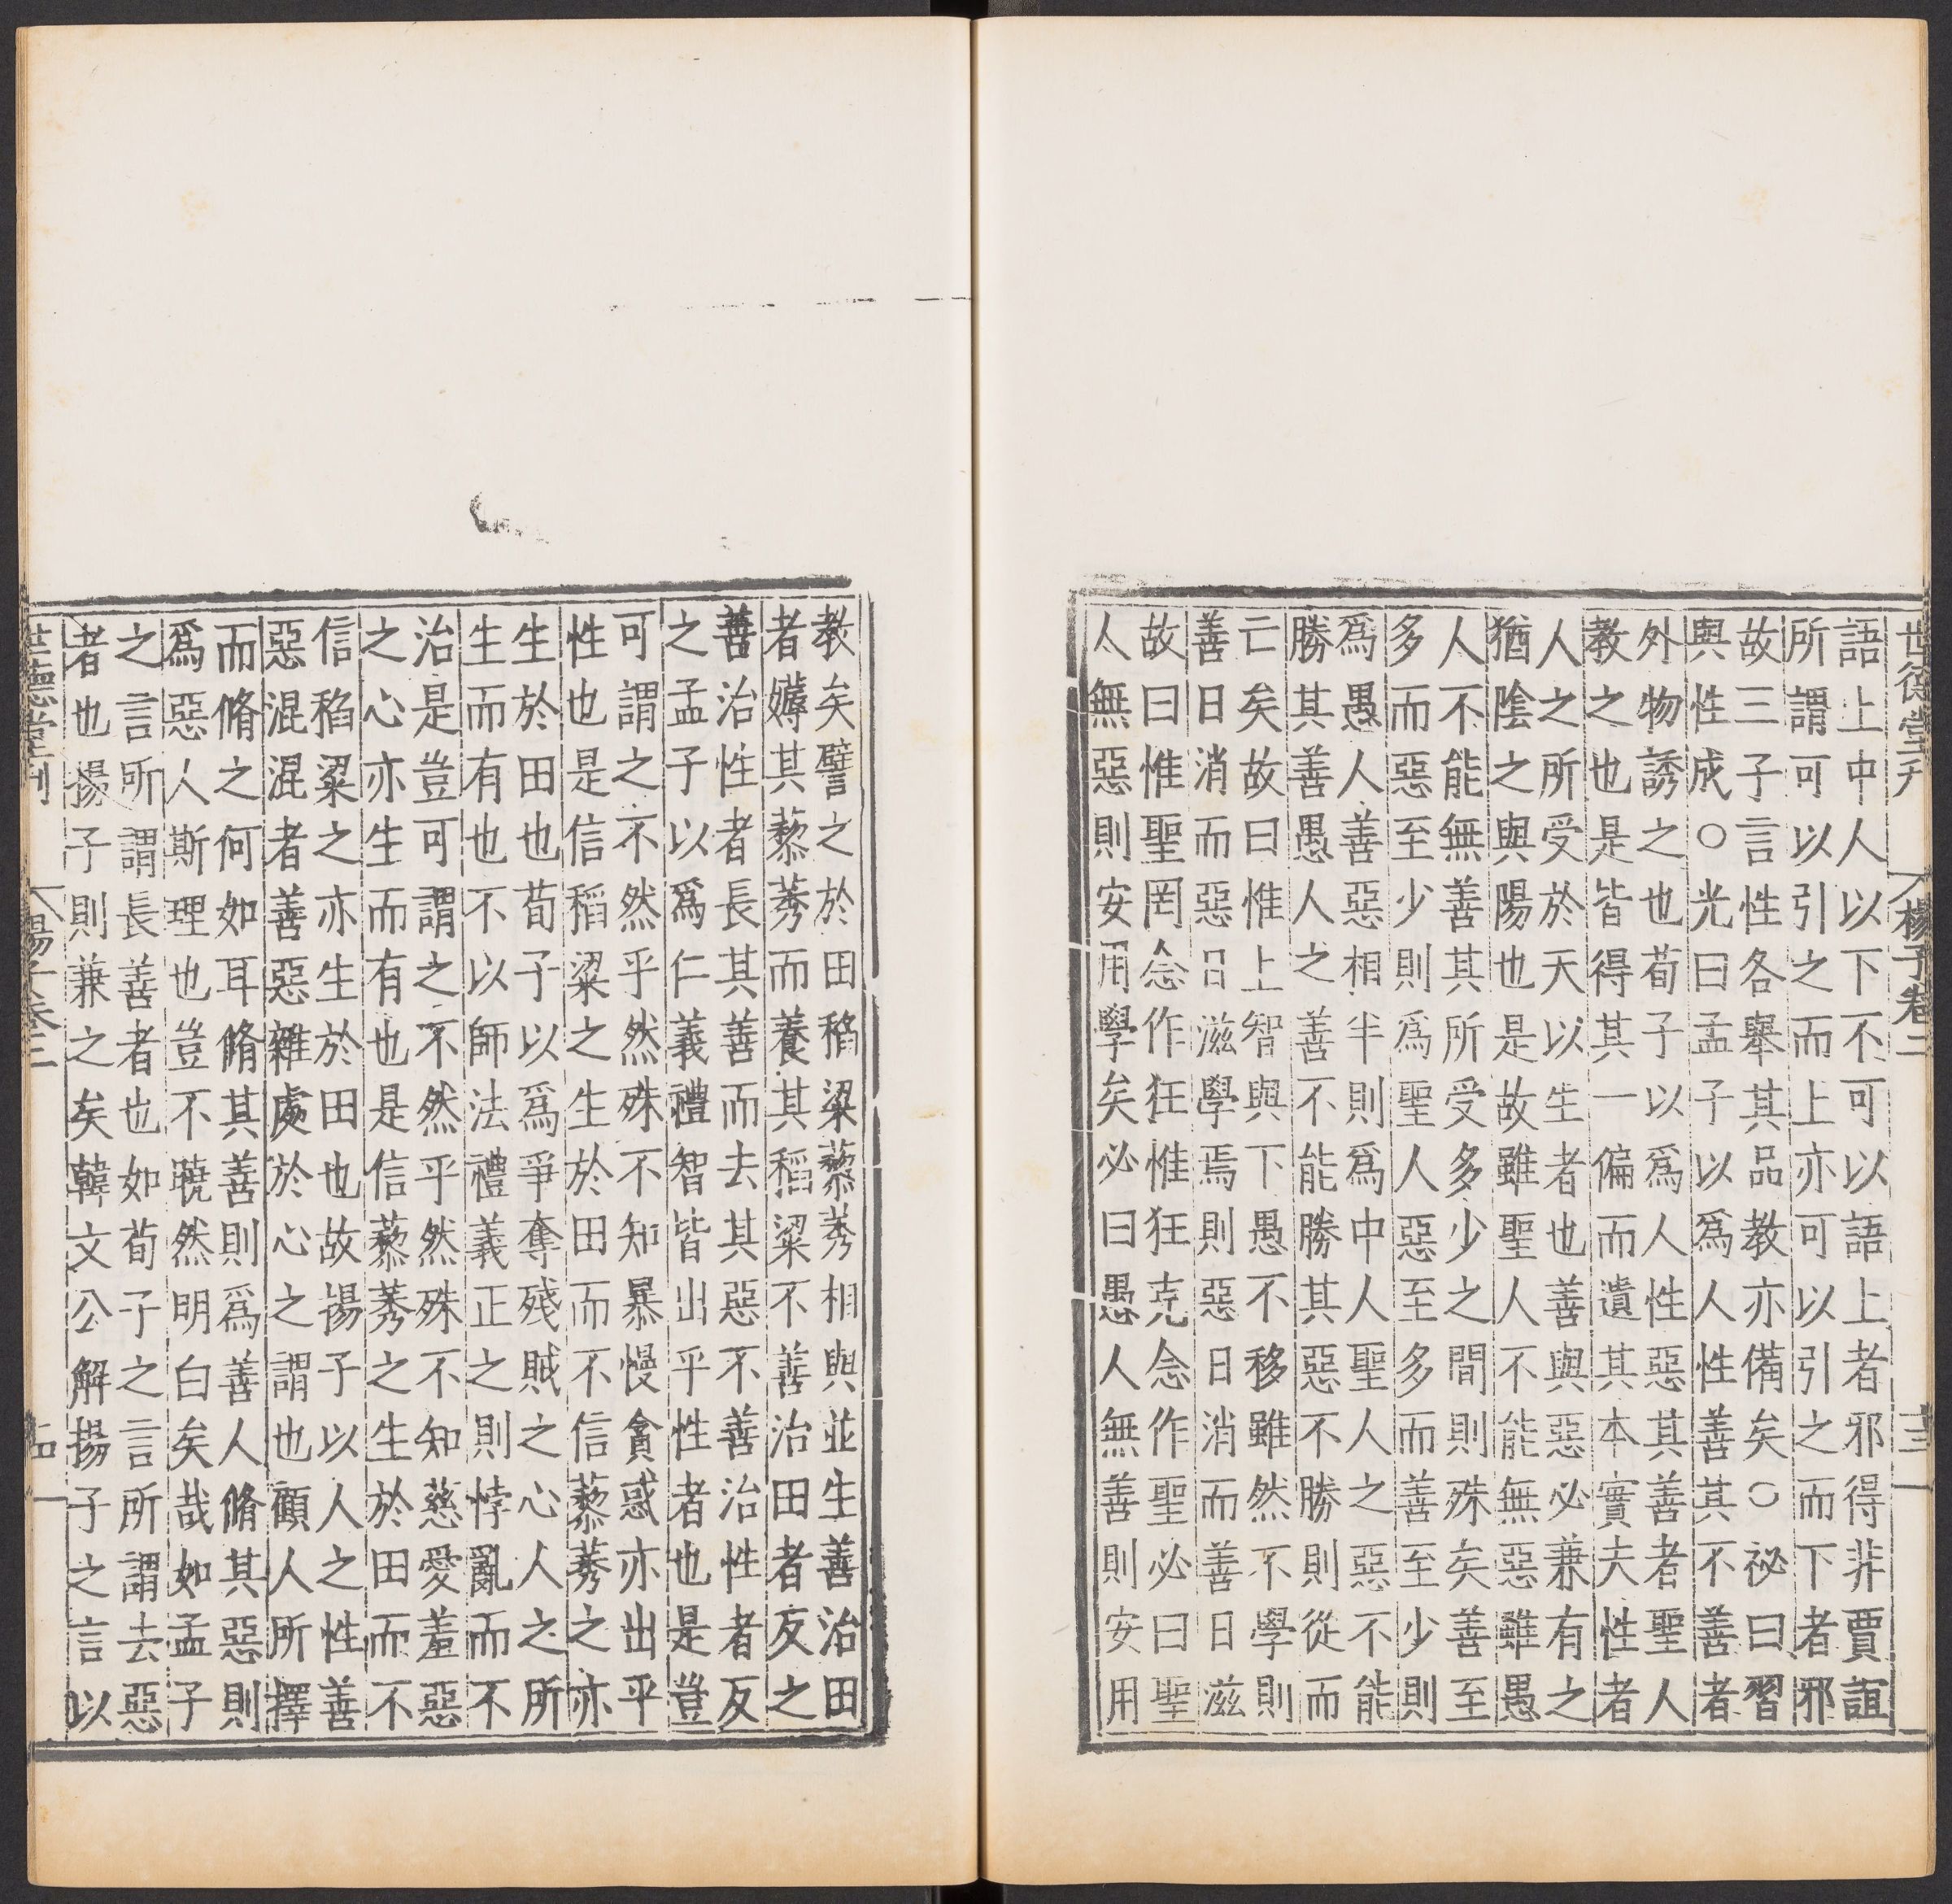 世德堂刋
楊子卷二
十三
語上中人以下不可以語上者邪得非賈誼
所謂可以引之而上亦可以引之而下者邪
故三子言性各舉其品教亦備矣○祕曰習
與性成○光曰孟子以爲人性善其不善者
外物誘之也荀子以爲人性惡其善者聖人
教之也是皆得其一偏而遺其本實夫性者
人之所受於天以生者也善與惡必兼有之
猶陰之與陽也是故雖聖人不能無惡雖愚
人不能無善其所受多少之間則殊矣善至
多而惡至少則爲聖人惡至多而善至少則
爲愚人善惡相半則爲中人聖人之惡不能
勝其善愚人之善不能勝其惡不勝則從而
亡矣故曰惟上智與下愚不移雖然不學則
善日消而惡日滋學焉則惡日消而善日滋
故曰惟聖罔念作狂惟狂克念作聖必曰聖
人無惡則安用學矣必曰愚人無善則安用
教矣譬之於田稻粱藜莠相與並生善治田
者薅其藜莠而養其稻粱不善治田者反之
善治性者長其善而去其惡不善治性者反
之孟子以爲仁義禮智皆出乎性者也是豈
可謂之不然乎然殊不知暴慢貪惑亦出乎
性也是信稻粱之生於田而不信藜莠之亦
生於田也荀子以爲爭奪殘賊之心人之所
生而有也不以師法禮義正之則悖亂而不
治是豈可謂之不然乎然殊不知慈愛羞惡
之心亦生而有也是信藜莠之生於田而不
信稻粱之亦生於田也故揚子以人之性善
惡混混者善惡雜處於心之謂也顧人所擇
而脩之何如耳脩其善則爲善人脩其惡則
爲惡人斯理也豈不曉然明白矣哉如孟子
之言所謂長善者也如荀子之言所謂去惡
者也揚子則兼之矣韓文公解揚子之言以
世德堂刋
揚子卷二
十四